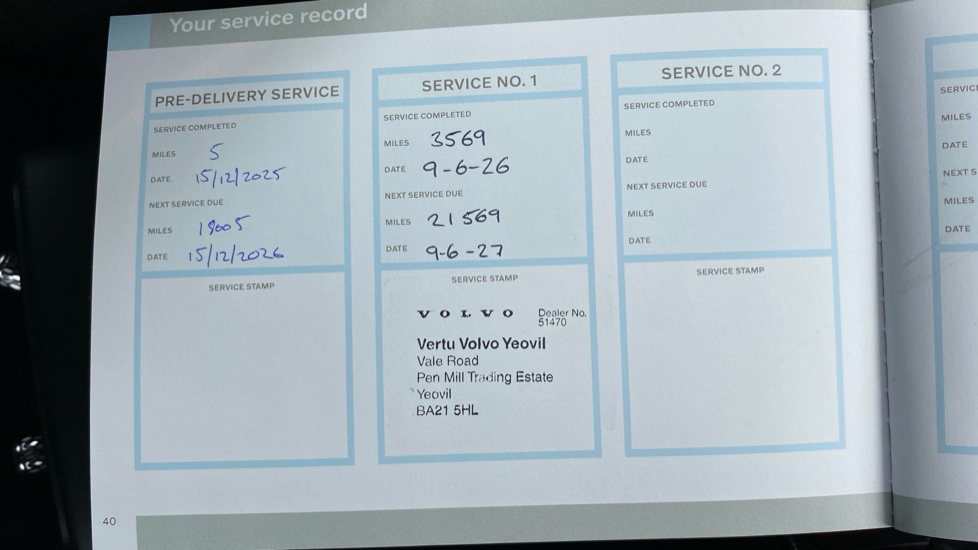 Your service record
PRE-DELIVERY SERVICE
SERVICE COMPLETED
MILES 5
DATE 15/12/2025
NEXT SERVICE DUE
MILES 18005
DATE 15/12/2026
SERVICE STAMP
SERVICE NO. 1
SERVICE COMPLETED
MILES 3569
DATE 9-6-26
NEXT SERVICE DUE
MILES 21569
DATE 9-6-27
SERVICE STAMP
VOLVO Dealer No.
51470
Vertu Volvo Yeovil
Vale Road
Pen Mill Trading Estate
Yeovil
BA21 5HL
SERVICE NO. 2
SERVICE COMPLETED
MILES
DATE
NEXT SERVICE DUE
MILES
DATE
SERVICE STAMP
MILES
DATE
NEXT S
MILES
DATE
40